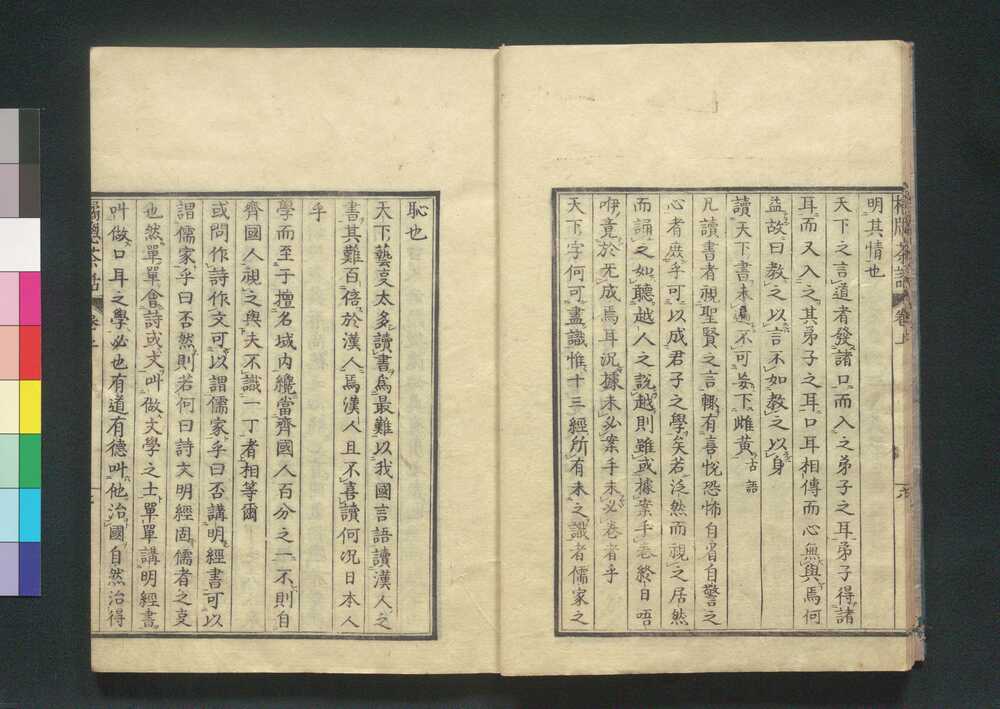 明其情也
天下之言道者發諸口而入之弟子之耳弟子得諸
耳而又入之其弟子之耳口耳相傳而心無與焉何
益故曰教之以言不如教之以身
讀天下書未遍不可妄下雌黃 古語
凡讀書者視聖賢之言輙有喜悅恐怖自省自警之
心者庶乎可以成君子之學矣若泛然而視之居然
而誦之如聽越人之說越則雖或據案手卷終日唔
咿竟於无成焉耳況據未必案手未必卷者乎
天下字何可盡識惟十三經所有未之識者儒家之
橘牕茶話 卷上
恥也
天下藝亦太多讀書爲最難以我國言語讀漢人之
書其難百倍於漢人焉漢人且不喜讀何況日本人
乎
學而至于擅名域内纔當齊國人百分之一不則自
齊國人視之與夫不識一丁者相等爾
或問作詩作文可以謂儒家乎曰否講明經書可以
謂儒家乎曰否然則若何曰詩文明經固儒者之事
也然單單會詩或文叫做文學之士單單講明經書
叫做口耳之學必也有道有德叫他治國自然治得
橘牕茶話 卷上